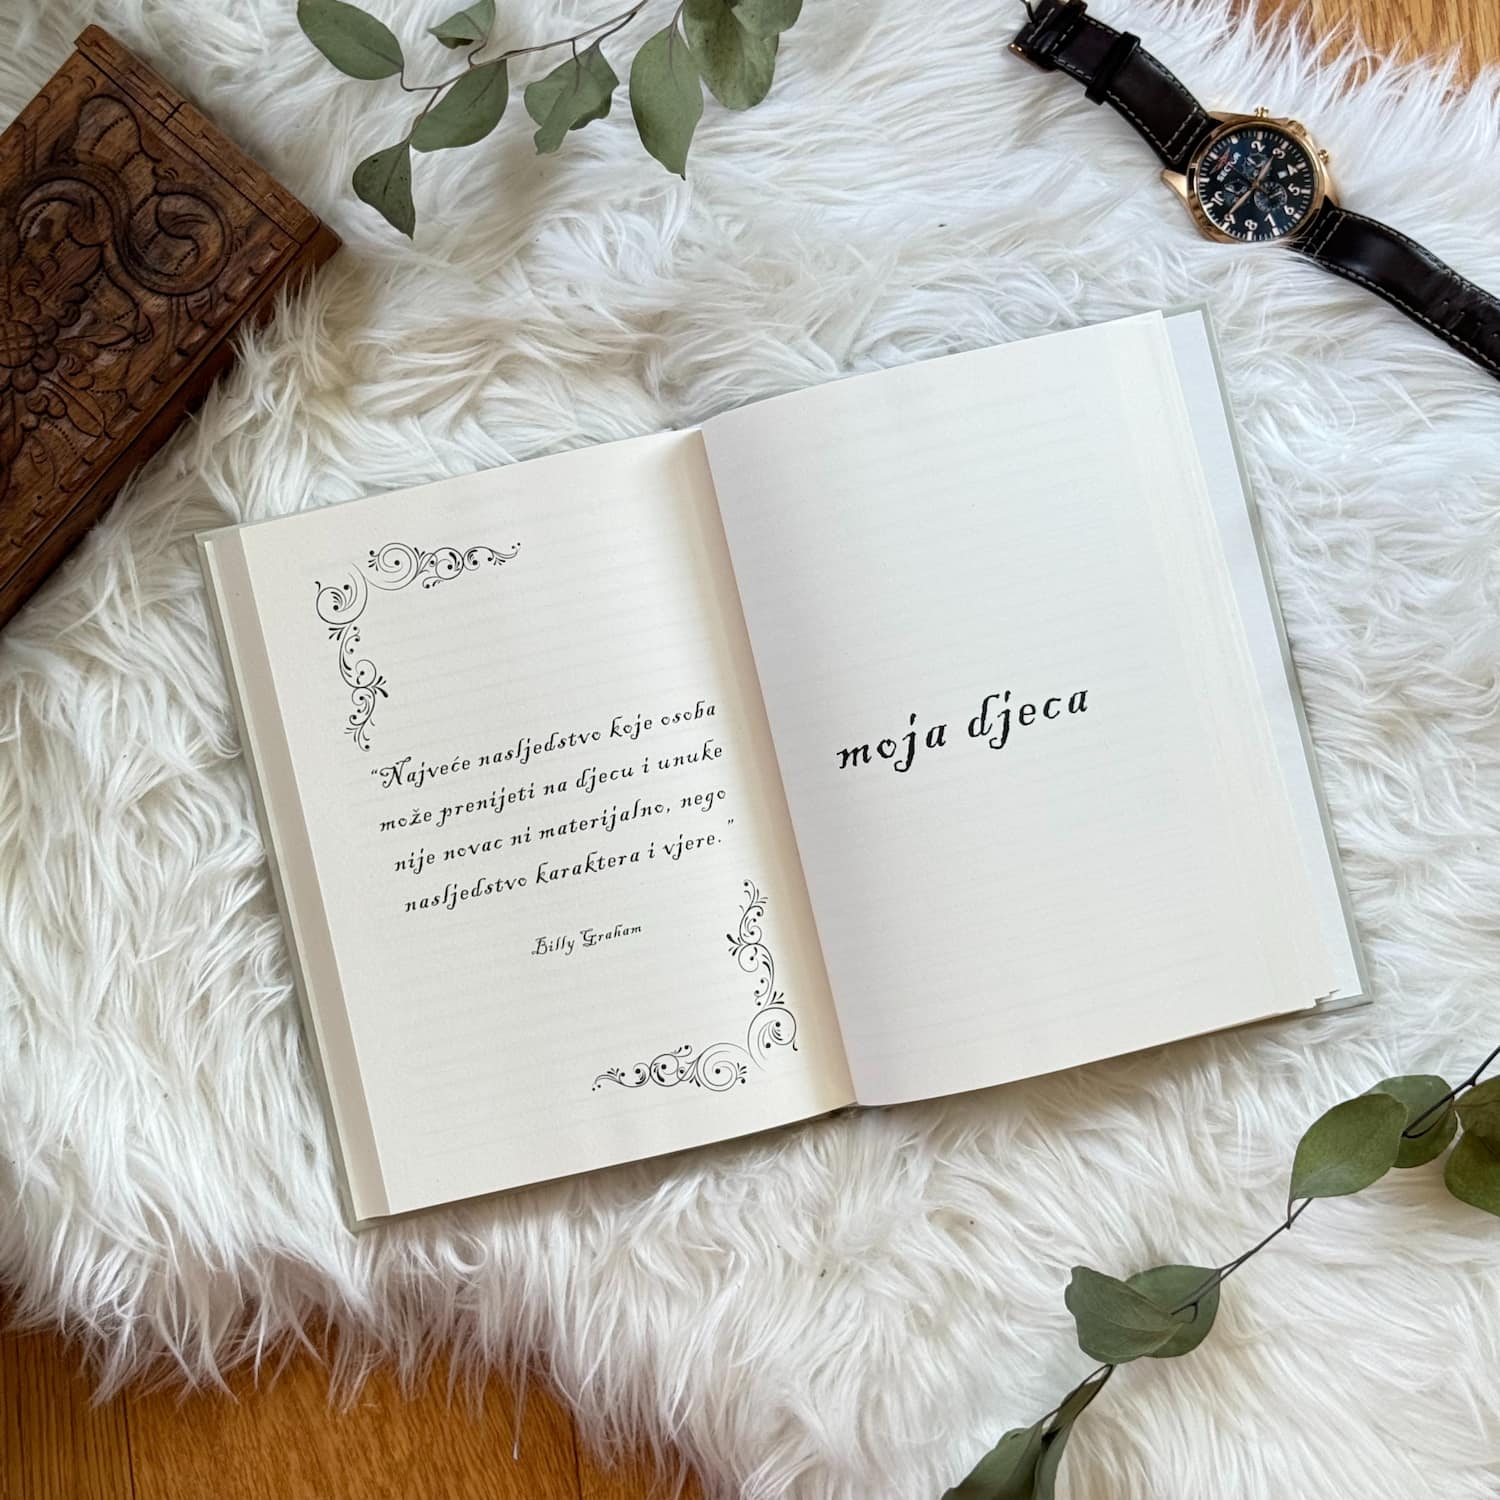 “Najveće nasljedstvo koje osoba
može prenijeti na djecu i unuke
nije novac ni materijalno, nego
nasljedstvo karaktera i vjere.”
Billy Graham
moja djeca
SECTOR
2
3
4
5
7
8